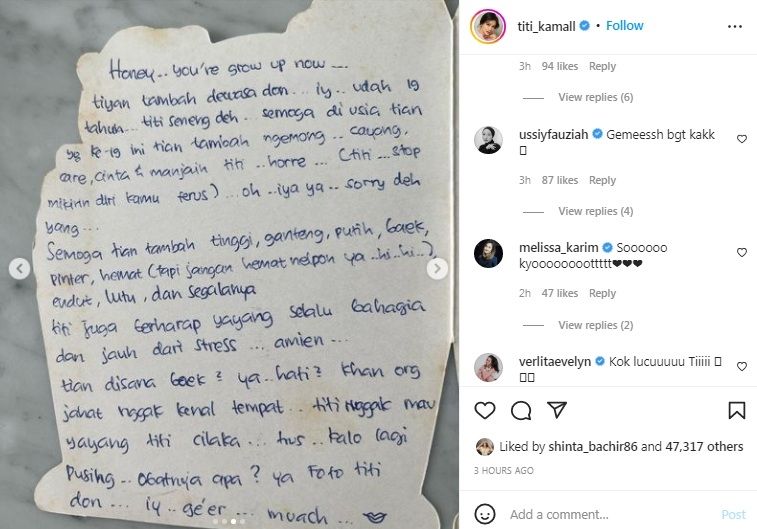 Honey.. you're grow up now ....
tiyan tambah dewasa don... iy.. udah 19
tahun... titi seneng deh.. semoga di usia tian
yg ke-19 ini tian tambah ngemong.. cayang,
care, cinta & manjain titi.. horre... (titi...stop
mikirin diri kamu terus)...oh..iya ya.. sorry deh
yang...
Semoga tian tambah tinggi, ganteng, putih, baek,
pinter, hemat (tapi jangan hemat nelpon ya..hi..hi..)
endut, lutu, dan segalanya
titi juga berharap yayang selalu bahagia
dan jauh dari stress... amien...
tian disana baek2 ya..hati2 khan org
jahat nggak kenal tempat.. titi nggak mau
yayang titi cilaka... trus.. kalo lagi
pusing.. obatnya apa? ya Foto titi
don... iy.. ge'er... muach...
titi_kamall • Follow
3h 94 likes Reply
View replies (6)
ussiyfauziah Gemeessh bgt kakk
3h 87 likes Reply
View replies (4)
melissa_karim Soooooo
kyoooooooottttt❤❤❤
2h 47 likes Reply
View replies (2)
verlitaevelyn Kok lucuuuuu Tiiiii
Liked by shinta_bachir86 and 47,317 others
3 HOURS AGO
Add a comment...
Post